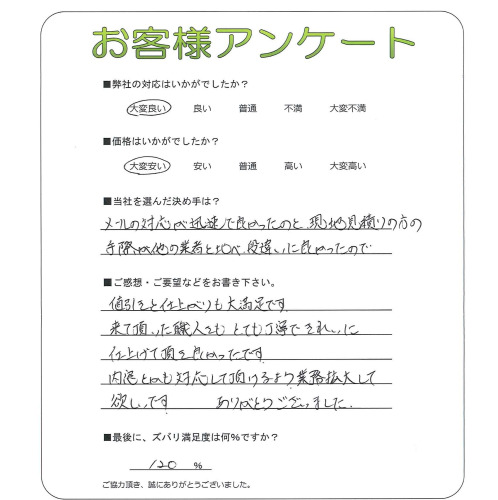 お客様アンケート
■弊社の対応はいかがでしたか？
大変良い 良い 普通 不満 大変不満
■価格はいかがでしたか？
大変安い 安い 普通 高い 大変高い
■当社を選んだ決め手は？
メールの対応が迅速で良かったのと、現地見積りの方の
手際が他の業者と比べ、段違いに良かったので
■ご感想・ご要望などをお書き下さい。
値引きと仕上がりも大満足です。
来て頂いた職人さもとても丁寧できれいに
仕上げて頂き良かったです。
内装とかも対応して頂けるよう業務拡大して
欲しいです ありがとうございました。
■最後に、ズバリ満足度は何%ですか？
120 %
ご協力頂き、誠にありがとうございました。